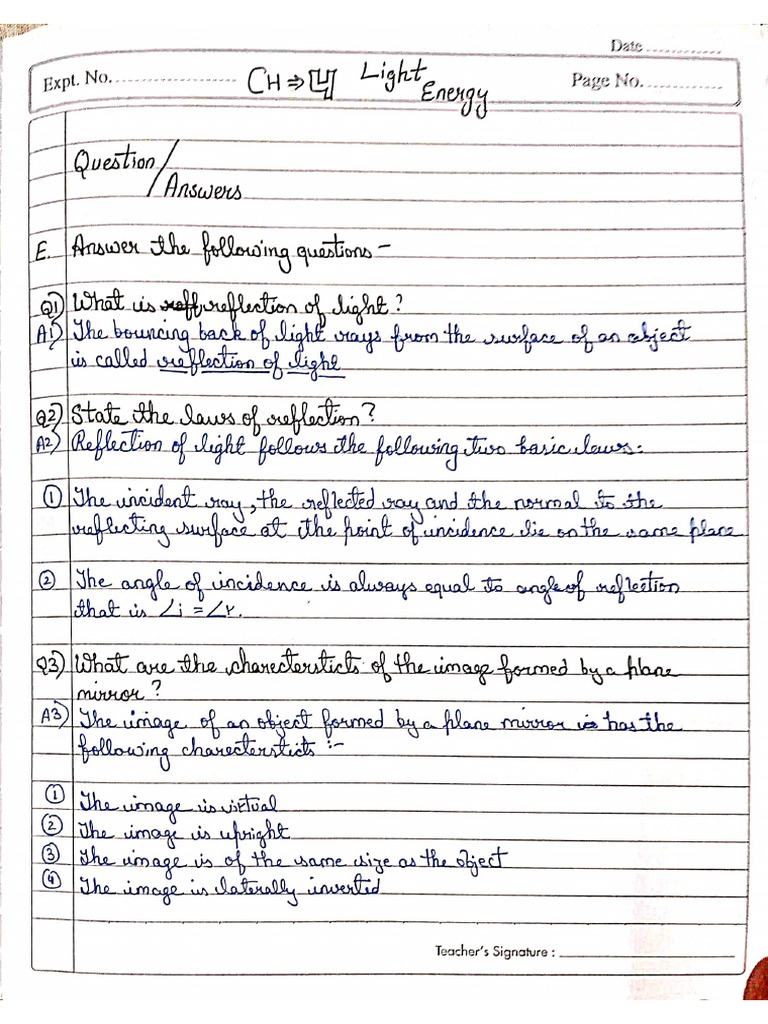 Date ............
Expt. No. ..................... CH ⇒ 4 Light Page No. .............
Energy
Question /
/ Answers
E. Answer the following questions –
Q1) What is reflection of light?
A1) The bouncing back of light rays from the surface of an object
is called reflection of light
Q2) State the laws of reflection?
A2) Reflection of light follows the following two basic laws:
① The incident ray, the reflected ray and the normal to the
reflecting surface at the point of incidence lie on the same plane
② The angle of incidence is always equal to angle of reflection
that is ∠i = ∠r.
Q3) What are the charectersticts of the image formed by a plane
mirror?
A3) The image of an object formed by a plane mirror is has the
following charectersticts :-
① The image is virtual
② The image is upright
③ The image is of the same size as the object
④ The image is laterally inverted
Teacher's Signature : ____________________